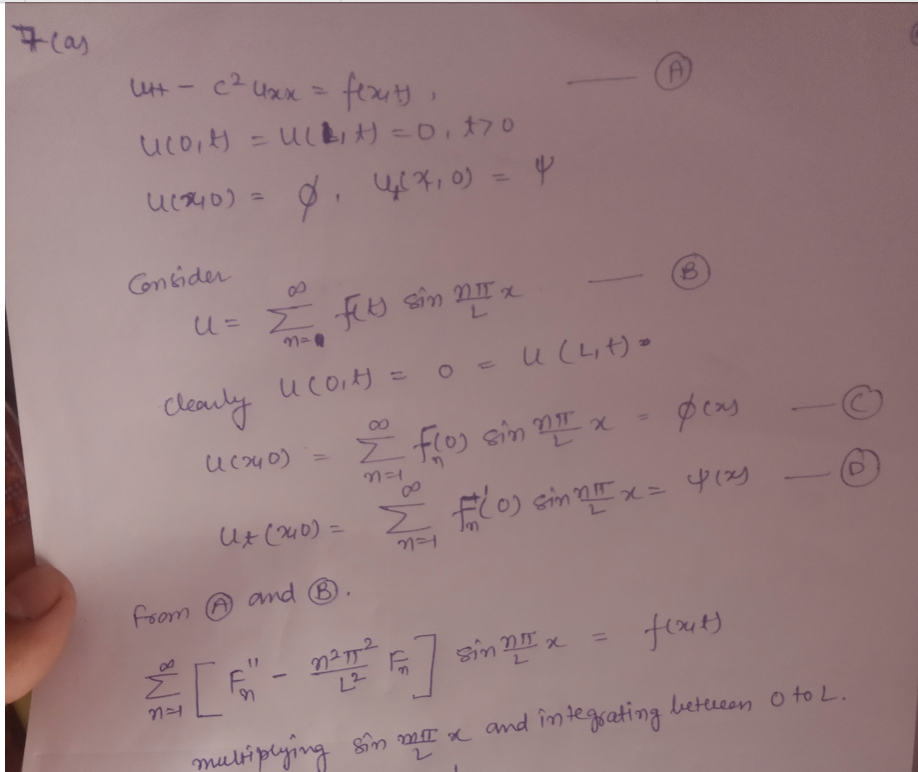 7(a)
u_tt - c² u_xx = f(x,t), — (A)
u(0,t) = u(L,t) = 0, t>0
u(x,0) = φ, u_t(x,0) = ψ
Consider
u = ∑_{n=0}^{∞} f(t) sin nπ/L x — (B)
clearly u(0,t) = 0 = u(L,t).
u(x,0) = ∑_{n=1}^{∞} F_n(0) sin nπ/L x = φ(x) — (C)
u_t(x,0) = ∑_{n=1}^{∞} F_n'(0) sin nπ/L x = ψ(x) — (D)
from (A) and (B).
∑_{n=1}^{∞} [F_n'' - n²π²/L² F_n] sin nπ/L x = f(x,t)
multiplying sin mπ/L x and integrating between 0 to L.